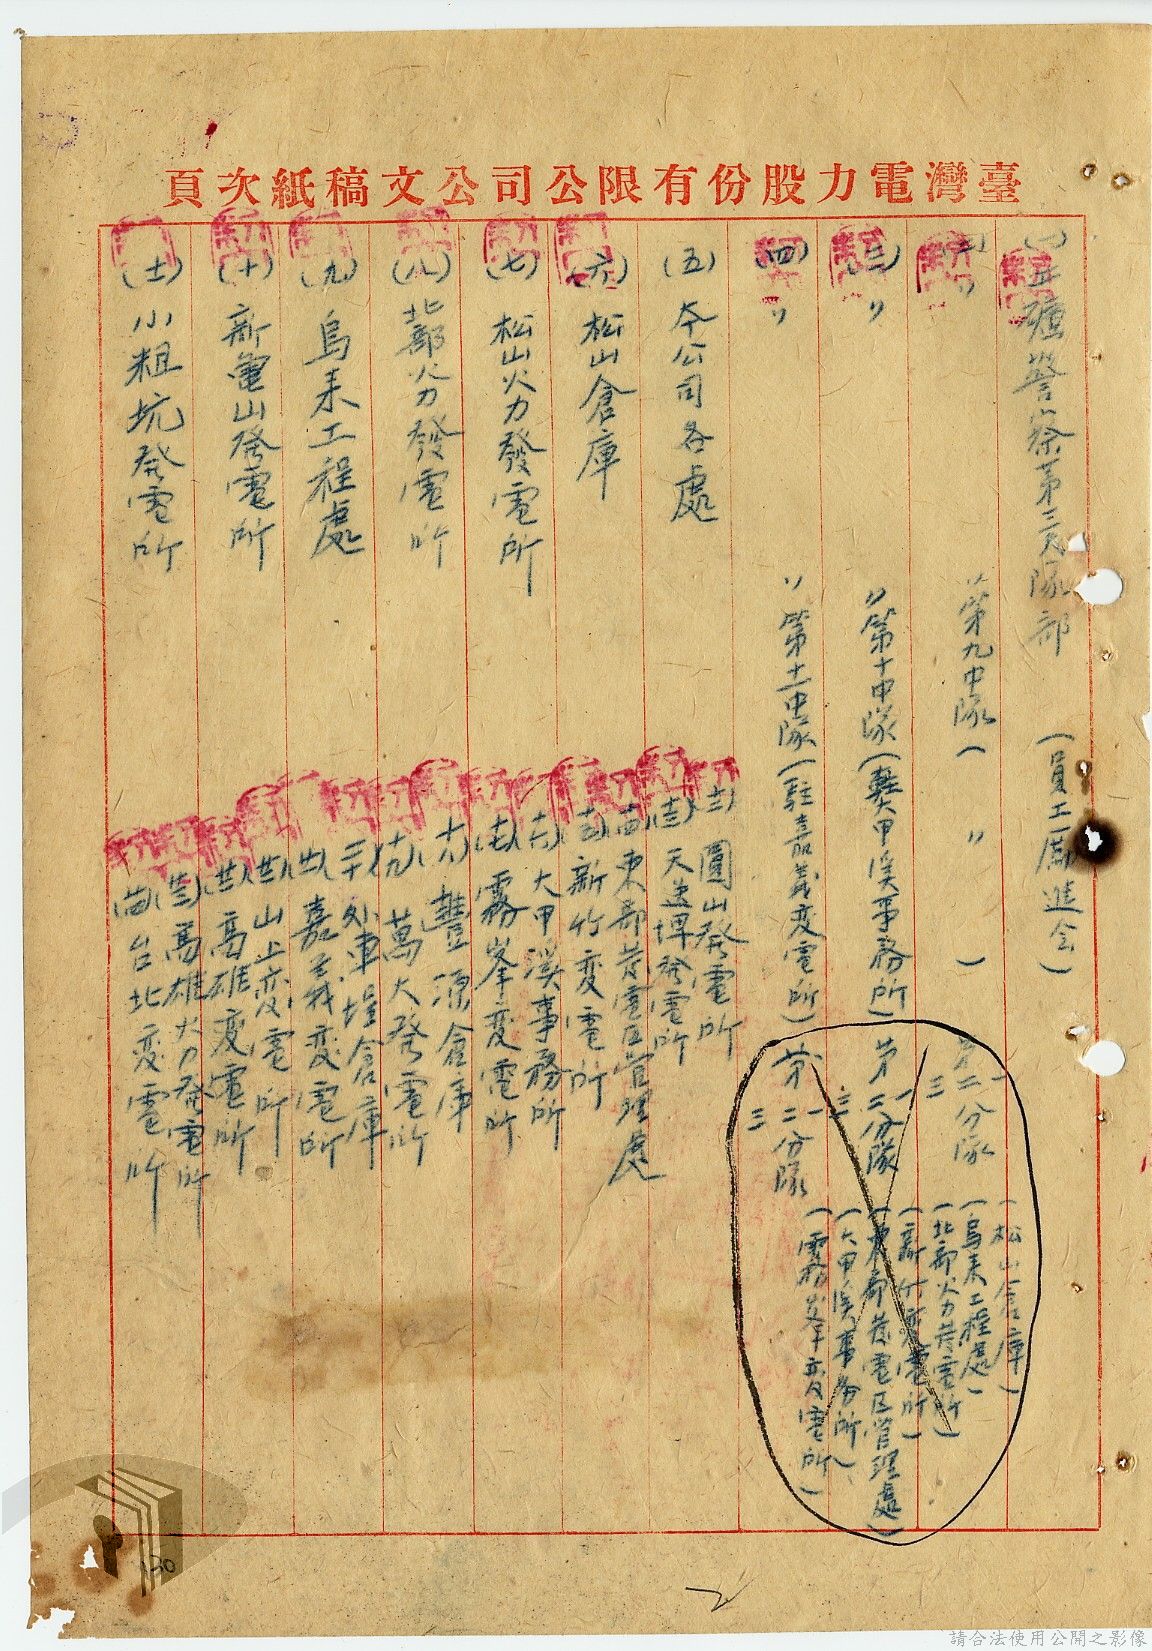 臺灣電力股份有限公司公文稿紙次頁
(一)工礦警察第三大隊部 (員工励進会)
(二)〃 〃第九中隊( 〃 )
(三)〃 〃第十中隊(駐大甲溪事務所)
(四)〃 〃第十一中隊(駐嘉義变電所)
第一二三分隊
(松山倉庫)
(烏来工程處)
(北部火力发電所)
第一二三分隊
(新竹变電所)
(東部发電区管理處)
(大甲溪事务所)
第一二三分隊
(霧峯变電所)
(五)本公司各處
(六)松山倉庫
(七)松山火力發電所
(八)北部火力發電所
(九)烏来工程處
(十)新亀山發電所
(士)小粗坑發電所
(士二)圓山發電所
(士三)天送埤發電所
(十四)東部发電区管理處
(十五)新竹变電所
(十六)大甲溪事務所
(十七)霧峯变電所
(十八)豐源倉庫
(十九)萬大發電所
(二十)外車埕倉庫
(廿一)嘉義变電所
(廿二)山上变電所
(廿三)高雄变電所
(廿三)高雄火力發電所
(廿四)台北变電所
130
請合法使用公開之影像